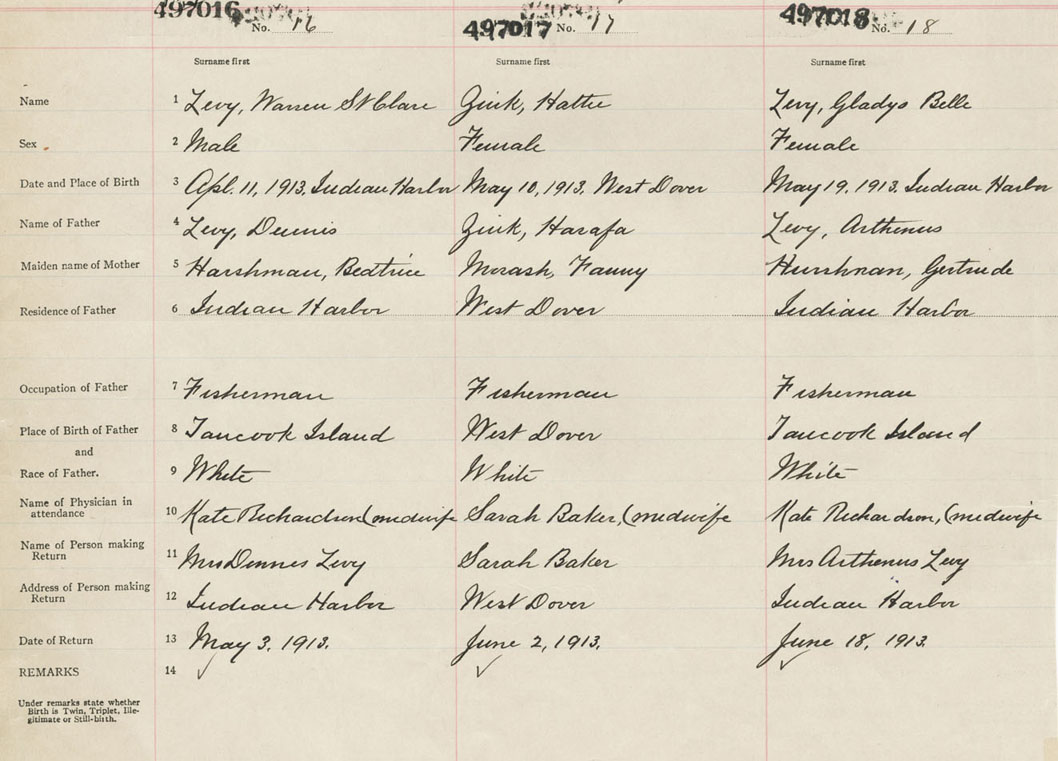 497016 No. 16 497017 No. 17 497018 No. 18
Surname first Surname first Surname first
Name 1 Levy, Warren St Clare Zink, Hattie Levy, Gladys Belle
Sex 2 Male Female Female
Date and Place of Birth 3 Apl. 11, 1913. Indian Harbor May 10, 1913. West Dover May 19, 1913. Indian Harbor
Name of Father 4 Levy, Dennis Zink, Harafa Levy, Arthenus
Maiden name of Mother 5 Harshman, Beatrice Morash, Fanny Hurshman, Gertrude
Residence of Father 6 Indian Harbor West Dover Indian Harbor
Occupation of Father 7 Fisherman Fisherman Fisherman
Place of Birth of Father 8 Tancook Island West Dover Tancook Island
and
Race of Father. 9 White White White
Name of Physician in
attendance 10 Kate Richardson (midwife Sarah Baker, (midwife Kate Richardson, (midwife
Name of Person making
Return 11 Mrs Dennis Levy Sarah Baker Mrs Arthenus Levy
Address of Person making
Return 12 Indian Harbor West Dover Indian Harbor
Date of Return 13 May 3, 1913. June 2, 1913. June 18, 1913.
REMARKS 14
Under remarks state whether
Birth is Twin, Triplet, Ille-
gitimate or Still-birth.